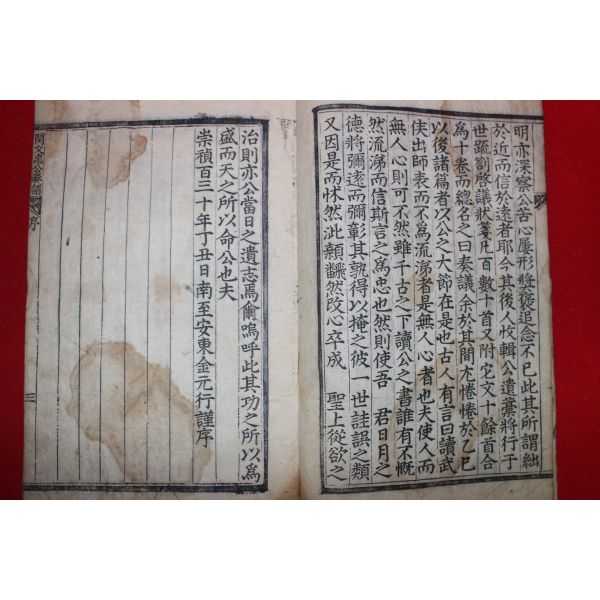 明亦深察公苦心屢形奬褒追念不已此其所謂絀
於近而信於遠者耶今其後人收輯公遺藁將行于
世疏劄啓議狀箋凡百數十首又附定文十餘首合
爲十卷而緫名之曰奏議余於其間尤惓惓於乙巳
以後諸篇者以公之大節在是也古人有言曰讀武
侯出師表而不爲流涕者是無人心者也夫使人而
無人心則可不然雖千古之下讀公之書誰有不慨
然流涕而信斯言之爲忠也然則使吾 君日月之
德將彌遠而彌彰其孰得以掩之彼一世詿誤之類
又因是而怵然泚顙飜然改心卒成 聖上從欲之
治則亦公當日之遺志焉爾嗚呼此其功之所以爲
盛而天之所以命公也夫
崇禎百三十年丁丑日南至安東金元行謹序
閔文忠公奏議 序 三